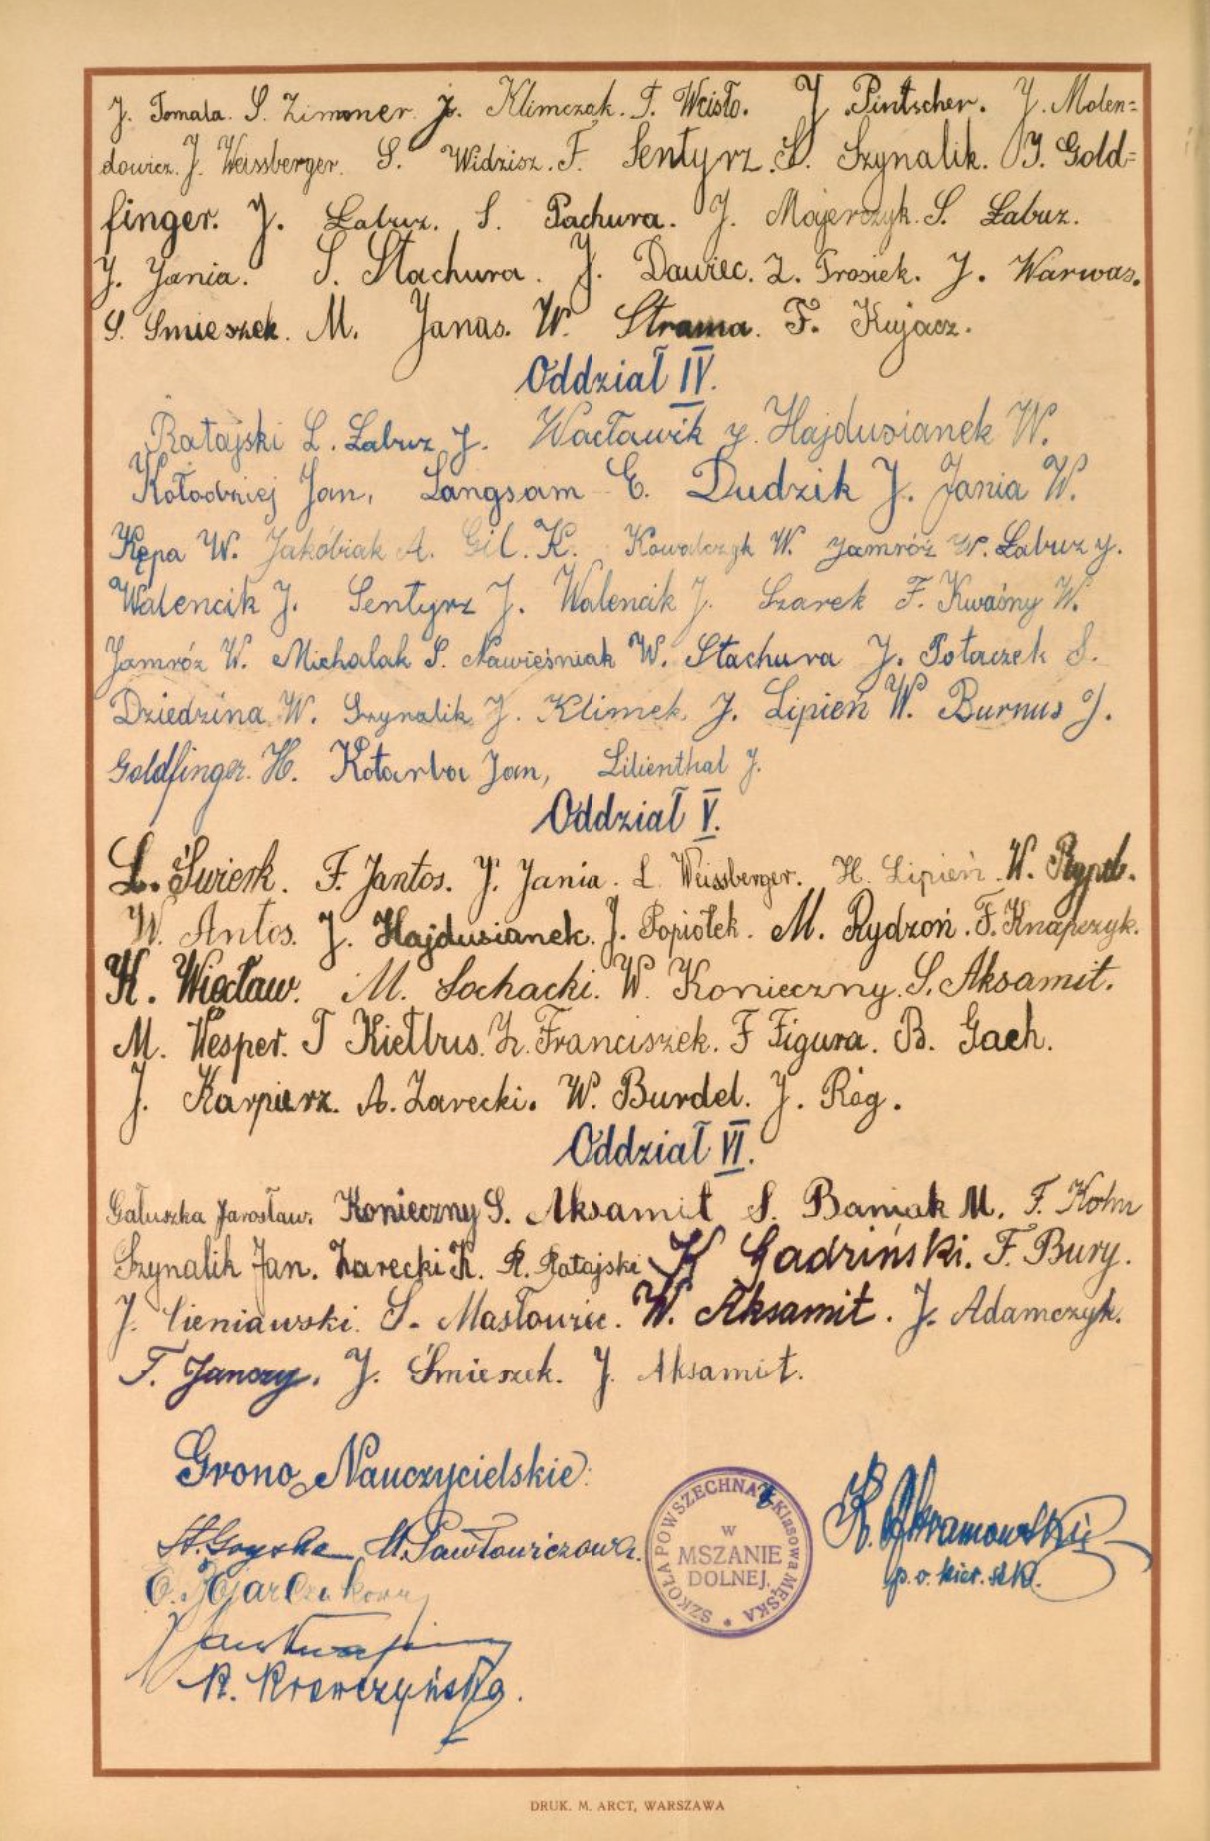 J. Tomala. S. Zimmer. J. Klimczak. T. Weisło. J. Pintscher. J. Molen=
dowicz. J. Weissberger. S. Widzisz. F. Sentyrz. S. Szynalik. J. Gold=
finger. J. Łabuz. S. Pachura. J. Majerczyk. S. Łabuz.
J. Jania. S. Stachura. J. Dawiec. Z. Trosiek. J. Warwas.
S. Smieszek. M. Janas. W. Strama. F. Kujacz.
Oddział IV.
Ratajski L. Łabuz J. Wacławik J. Hajdusianek W.
Kołodziej Jan, Langsam E. Dudzik J. Jania W.
Kępa W. Jakóbiak A. Gil. K. Kowalczyk W. Jamróz W. Łabuz J.
Walencik J. Sentyrz J. Walencik J. Szarek F. Kwaśny W.
Jamróz W. Michalak S. Nawieśniak W. Stachura J. Potaczek S.
Dziedzina W. Szynalik J. Klimek J. Lipień W. Burnus J.
Goldfinger. H. Kotarba Jan, Lilienthal J.
Oddział V.
L. Świerk. F. Jantos. J. Jania. L. Weissberger. H. Lipień. W.
W. Antos. J. Hajdusianek. J. Popiołek. M. Rydzoń. F. Knapczyk.
K. Wiecław. M. Sochacki. W. Konieczny. S. Aksamit.
M. Wesper. T Kiełbus. Z. Franciszek. F Figura. B. Gach.
J. Karpierz. A. Zarecki. W. Burdel. J. Róg.
Oddział VI.
Gałuszka Jarosław. Konieczny S. Aksamit S. Baniak M. F. Kohn
Szynalik Jan. Zarecki K. R. Ratajski K Gadziński. F. Bury.
J. Cieniawski. S. Masłowiec. W. Aksamit. J. Adamczyk.
F. Janczy. J. Śmieszek. J. Aksamit.
Grono Nauczycielskie:
St. M. Pawłowiczowa.
R. Krawczyńska.
SZKOŁA POWSZECHNA 7 Klasowa MĘSKA
W
MSZANIE
DOLNEJ.
K. Abramowski
p. o. kier. szk.
DRUK. M. ARCT, WARSZAWA